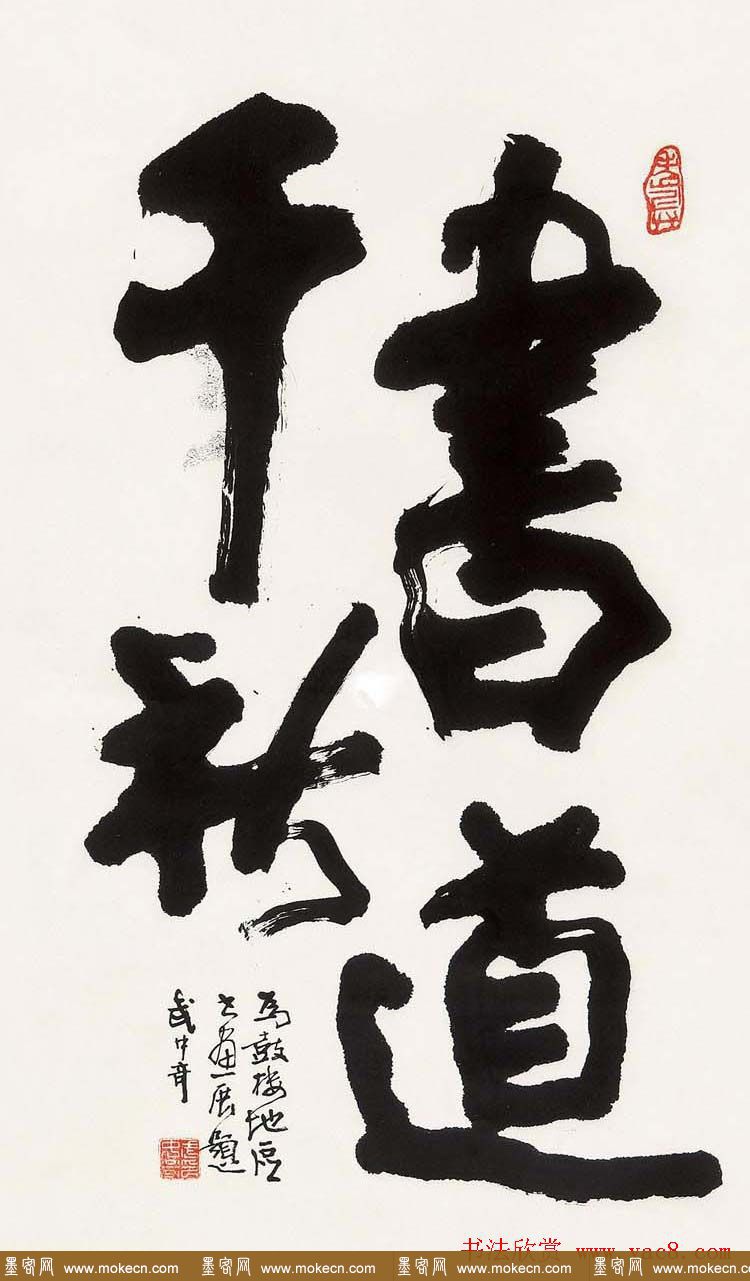 書道
千秋
为鼓楼地区
书画展题
武中奇
书法欣赏 www.yac8.com
墨客网 www.mokecn.com 墨客网 www.mokecn.com 墨客网 www.mokecn.com 墨客网 www.mokecn.com